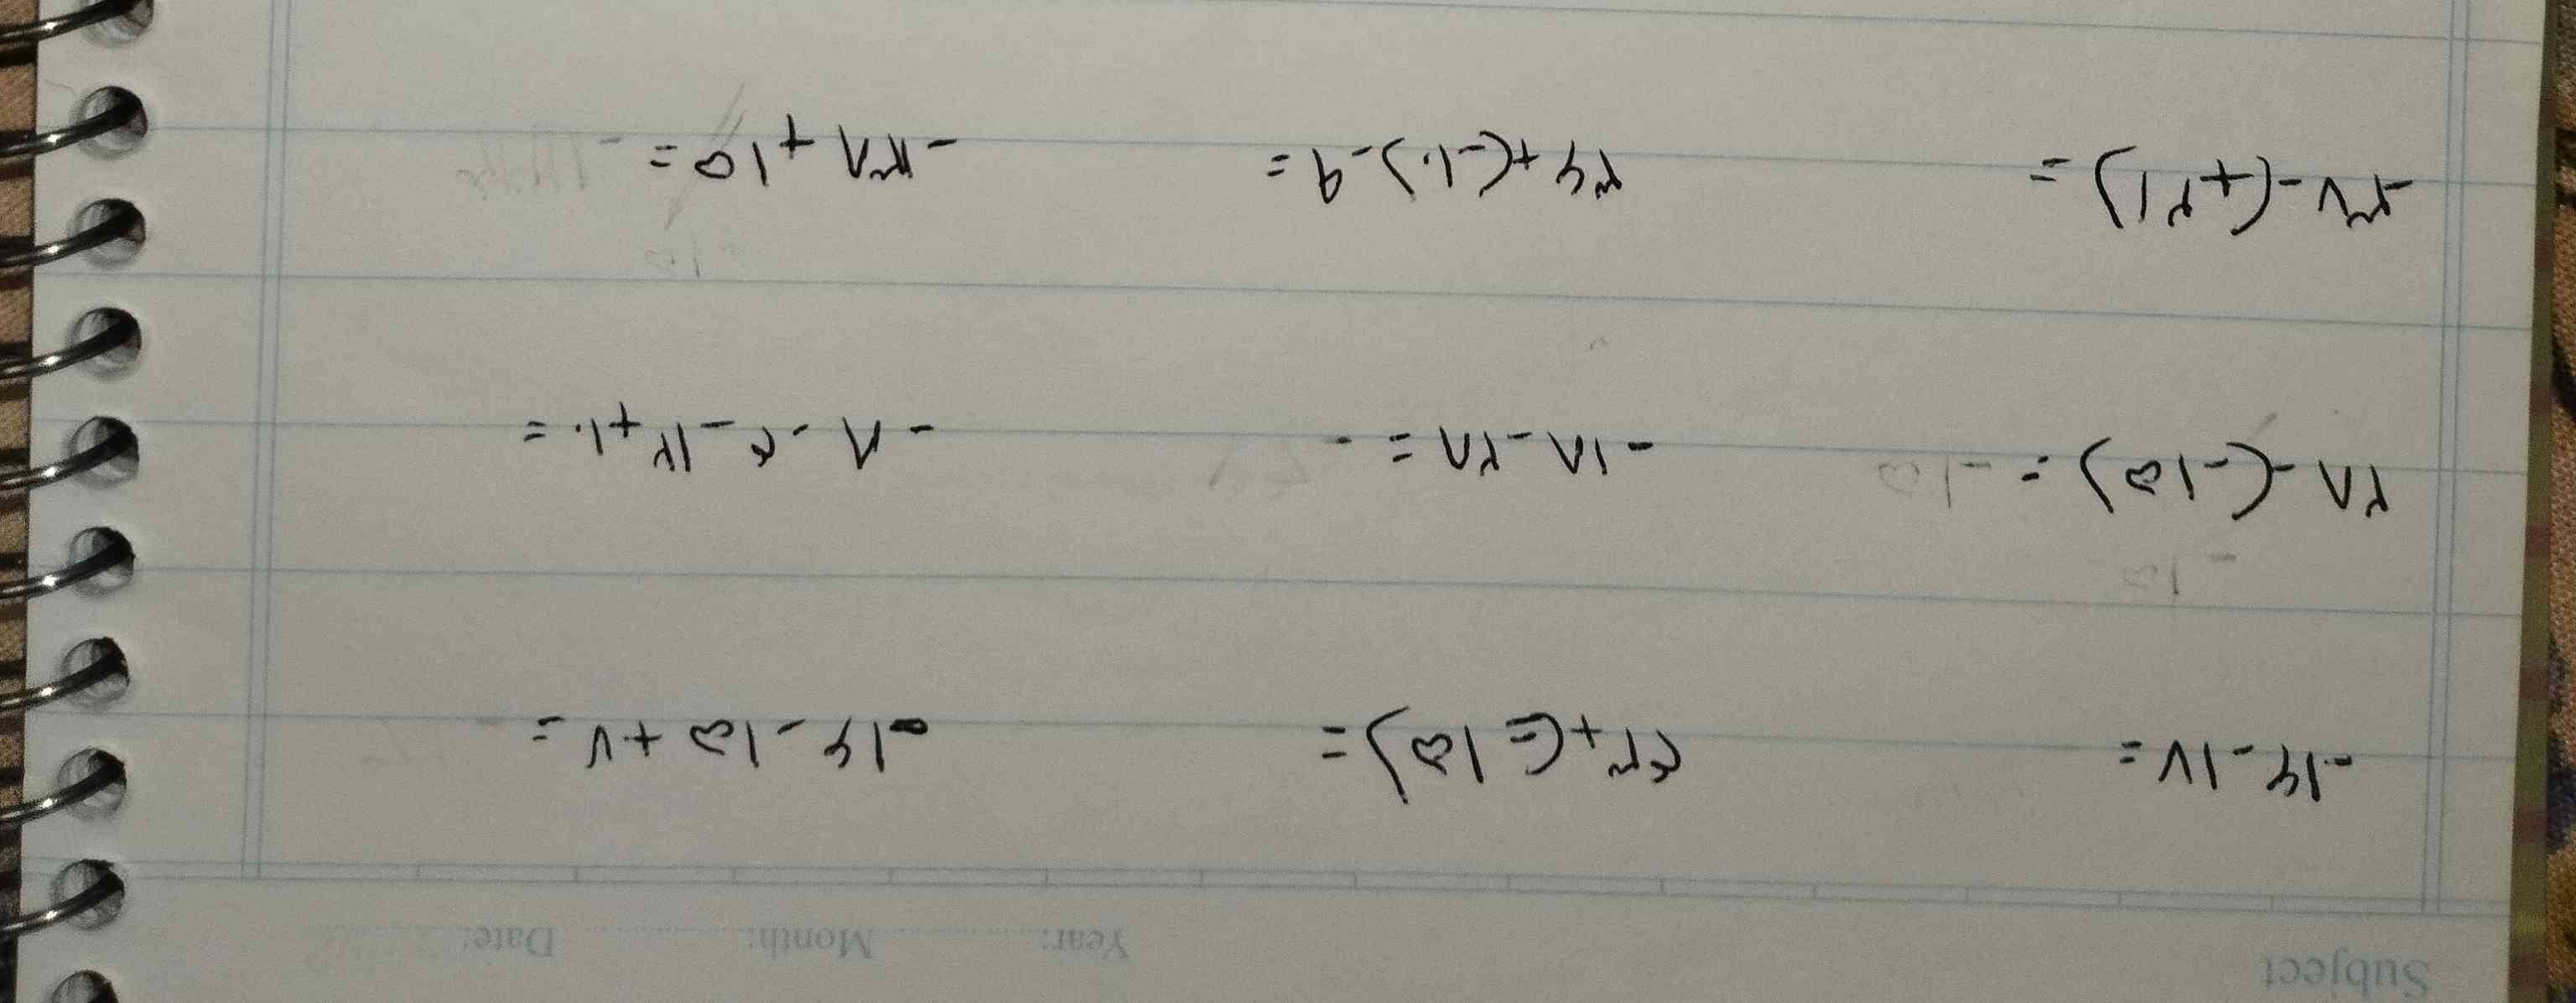 Subject Year: Month: Date:
-۱۶-۱۷= ۴۳+(-۱۵)= -۱۶-۱۵+۷=
۲۸-(-۱۵)= -۱۸-۲۸= - -۸-۴-۱۲+۱۰=
-۳۸-(+۲۱)= ۳۶+(-۱۰)-۹= -۳۸+۱۵=